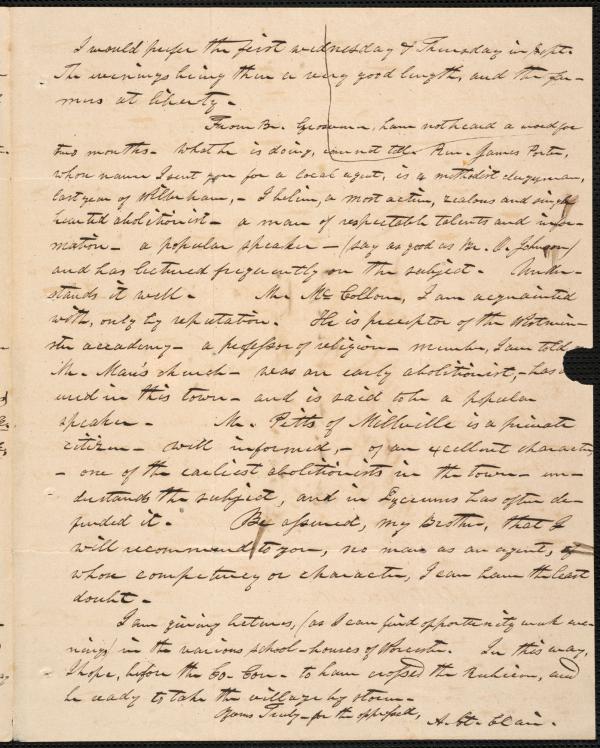 I would prefer the first wednesday & Thursday in Sept.
The evenings being then a very good length, and the far-
mers at liberty.
From Br. Grosvenor, have not heard a word for
two months - what he is doing, can not tell. Rev. James Porter,
whose name I sent you for a local agent, is a methodist clergyman,
last year of Wilbraham, - I believe, a most active, zealous and single
hearted abolitionist - a man of respectable talents and infor-
mation - a popular speaker - (say as good as Br. O. Johnson)
and has lectured frequently on the subject. Under-
stands it well. Mr. McCollom, I am acquainted
with, only by reputation. He is preceptor of the Westmin-
ster accademy - a professor of religion - member, I am told
Mr. Man's church - was an early abolitionist, - has
in this town - and is said to be a popular
speaker - Mr. Pitts of Millville is a private
citizen - well informed, - of an excellent character
- one of the earliest abolitionists in the town - un-
derstands the subject, and in Lyceums has often de-
fended it. Be assured, my Brother, that I
will recommend to you, no man as an agent, of
whose competency or character, I can have the least
doubt -
I am giving lectures, (as I can find opportunity week eve-
nings) in the various school-houses of Worcester. In this way,
I hope, before the Co. Con. - to have crossed the Rubicon, and
be ready to take the village by storm -
Yours Truly - for the oppressed,
A. St. Clair.